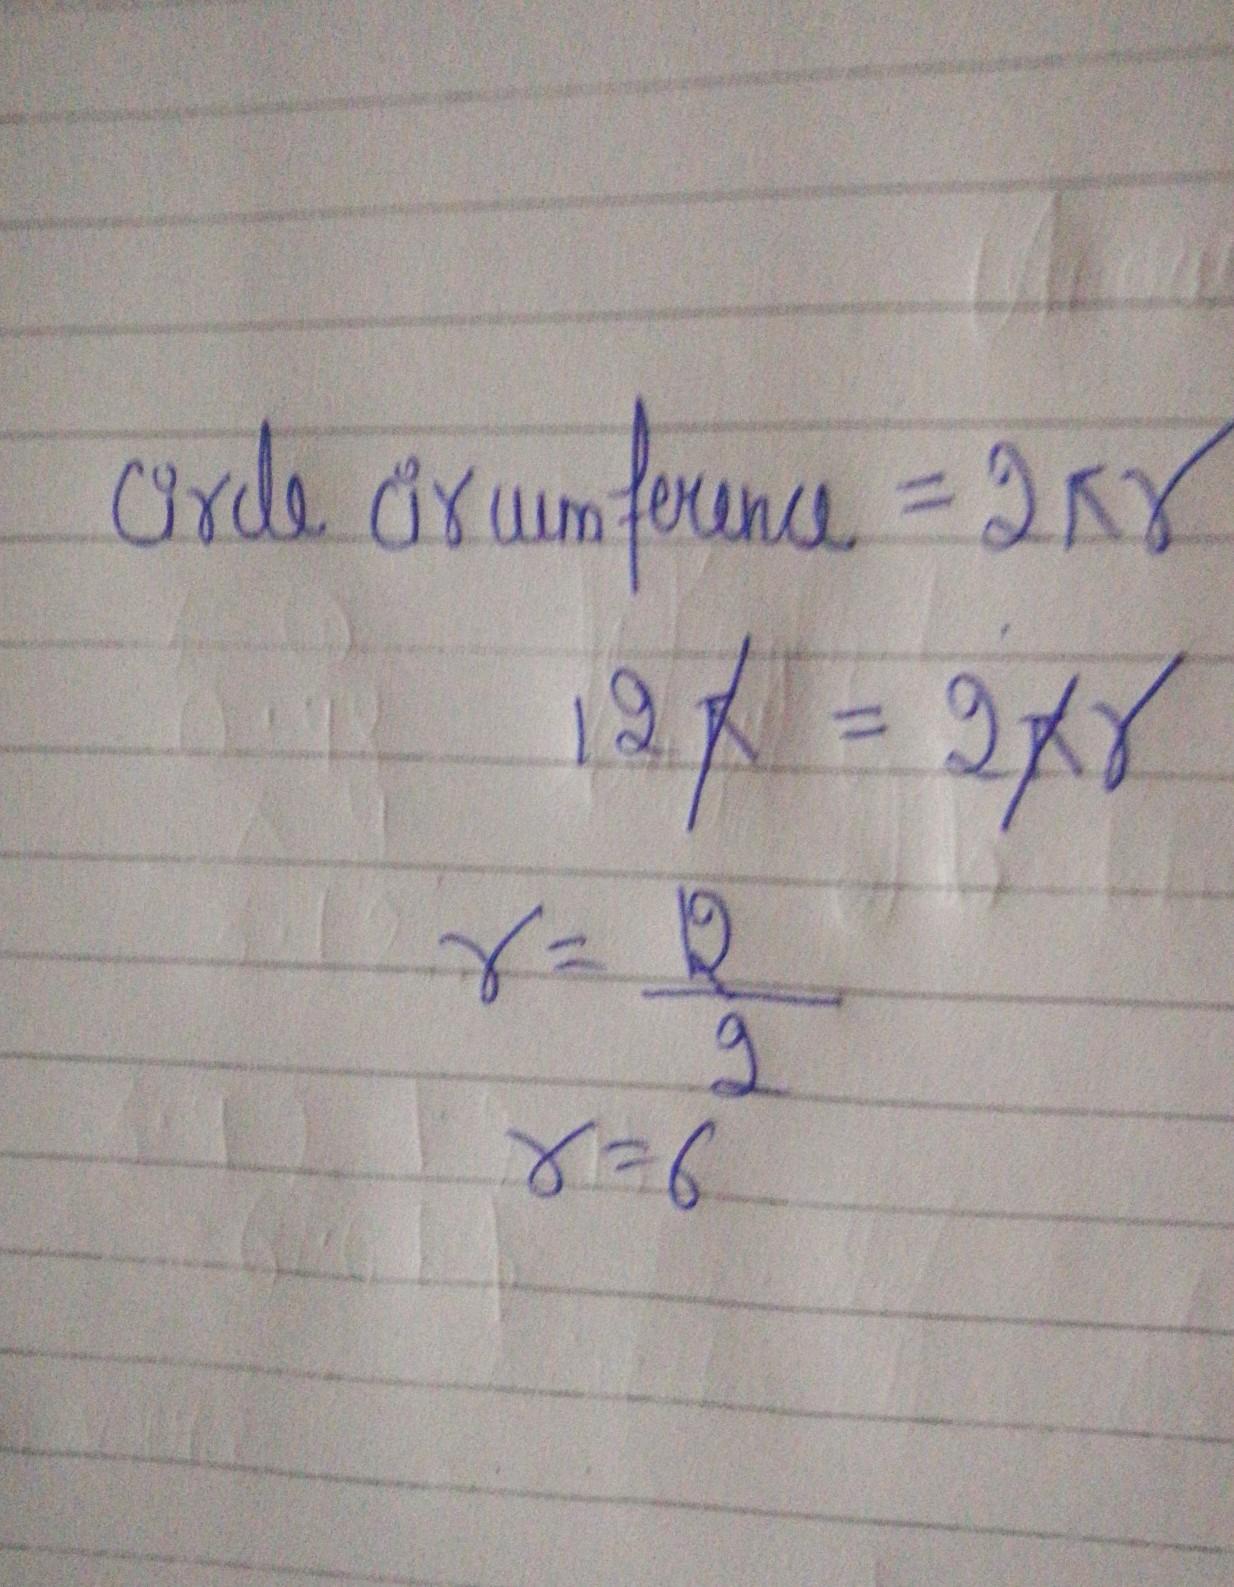 Circle Circumference = 2πr
12π = 2πr
r = 12/2
r = 6